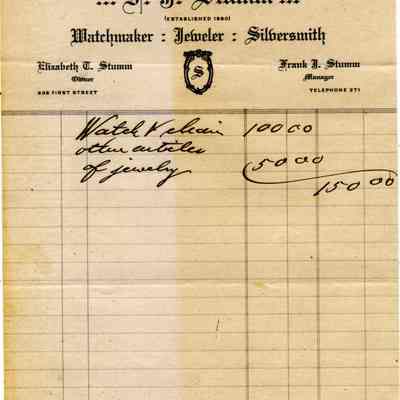 (ESTABLISHED 1880)
Watchmaker : Jeweler : Silversmith
Elizabeth T. Stumm
Owner
Frank J. Stumm
Manager
S
TELEPHONE 271
FIRST STREET
Watch & chain 100 00
other articles
of jewelry 50 00
150 00